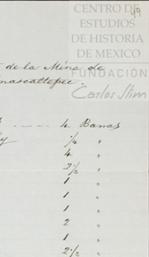 CENTRO DE
ESTUDIOS
DE HISTORIA
DE MEXICO
FUNDACIÓN
Carlos Slim
de la Mina de
4 Baras
1/2 "
4 "
3 1/2 "
1 "
1 "
1 "
2 "
1 "
2 1/2 "